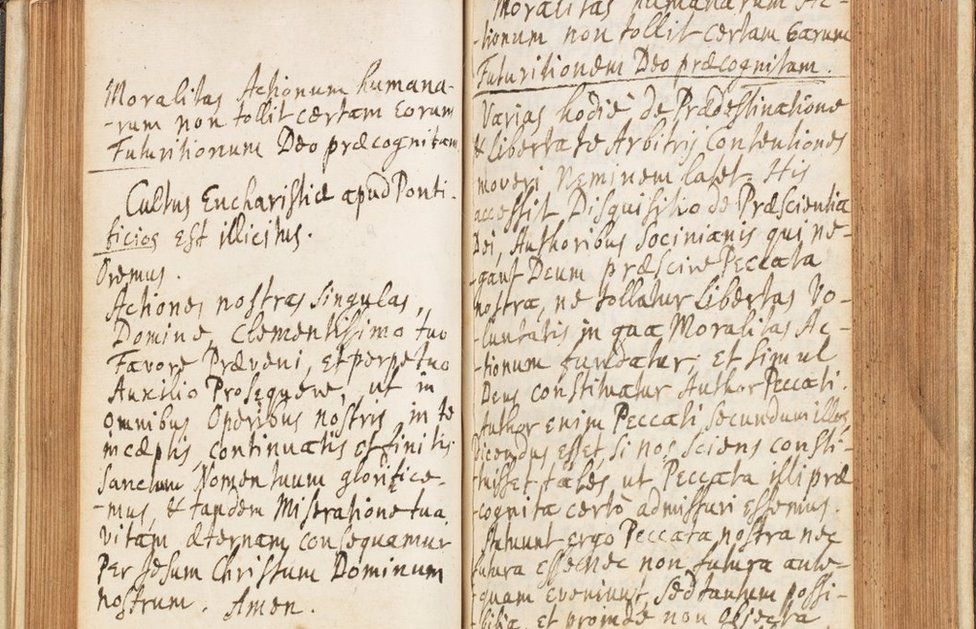 Moralitas Actionum humana-
-rum non tollit certam Eorum
Futuritionum Deo præcognitam
Cultus Eucharisticæ apud Ponti-
ficios est illicitus.
Oremus.
Actiones nostras singulas,
Domine, Clementissimo tuo
Favore Præveni, et perpetuo
Auxilio Prosequere, ut in
omnibus Operibus nostris in te
incæptis, continuatis et finitis
Sanctum Nomen tuum glorifice-
-mus, & tandem Miseratione tua
vitam æternam consequamur
Per Jesum Christum Dominum
nostrum. Amen.
Moralitas humanarum Ac-
-tionum non tollit certam Earum
Futuritionem Deo præcognitam.
Varias hodiè de Prædestinatione
& libertate Arbitrij Contentiones
moveri Neminem latet. His
accessit Disquisitio de Præscientia
Dei, Authoribus Socinianis qui ne-
-gant Deum præscire Peccata
nostra, ne tollatur Libertas Vo-
-luntatis in qua Moralitas Ac-
-tionum fundatur; et simul
Deus constituatur Author Peccati.
Author enim Peccati, secundum illos,
Dicendus esset, si nos sciens consti-
-tuisset tales ut Peccata illi præ
-cognita certò admissuri essemus.
Statuunt ergo Peccata nostra nec
futura esse nec non futura ante-
-quam eveniunt, sed tantum possi-
-bilia, et proinde non objecta